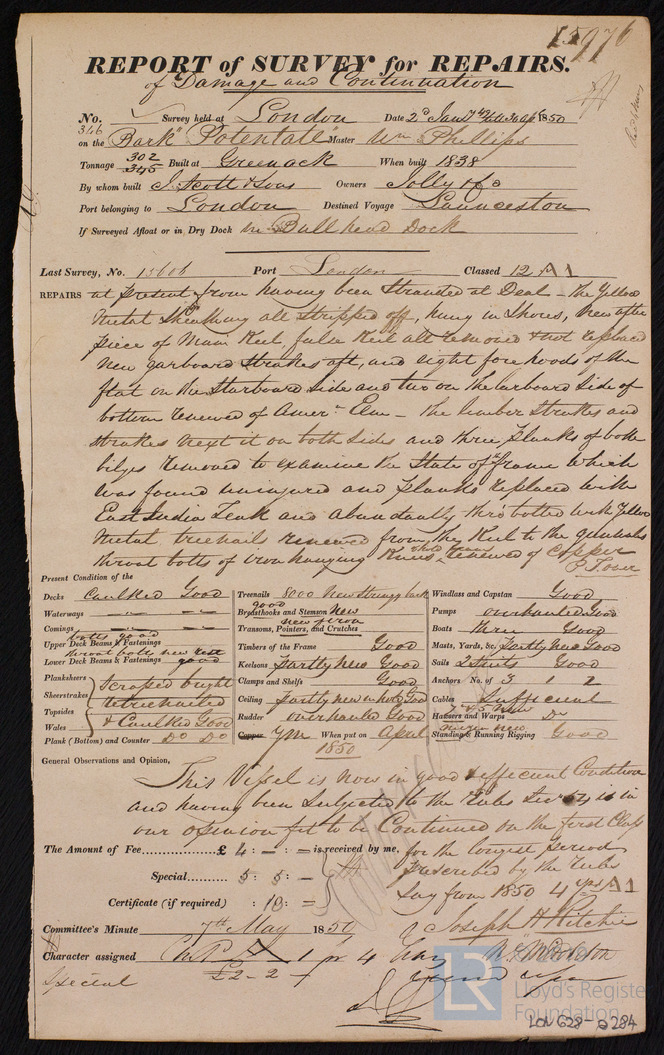 15976
REPORT of SURVEY for REPAIRS.
of Damage and Continuation
No. 346 Survey held at London Date 2d Jany 1850
on the Bark "Potentate" Master Wm Phillips
Tonnage 302 345 Built at Greenock When built 1838
By whom built J. Scott & Sons Owners Jolly & Co
Port belonging to London Destined Voyage Launceston
If Surveyed Afloat or in Dry Dock in Bull head Dock
Last Survey, No. 15606 Port London Classed 12 A1
REPAIRS at present from having been Stranded at Deal - The Yellow
Metal Sheathing all stripped off, hung in Shores, New after
piece of Main Keel, false Keel all removed & not replaced
New garboard strakes aft, and eight fore hoods of the
flat on the Starboard side and two on the larboard side of
bottom renewed of Amern Elm - The limber strakes and
strakes next it on both sides and three planks of both
bilges removed to examine the state of frame which
was found uninjured and planks replaced with
East India Teak and abundantly thro bolted with Yellow
Metal, treenails renewed from the Keel to the
throat bolts of iron hanging Knees renewed of Copper
Present Condition of the
Decks Caulked Good
Waterways
Comings
Upper Deck Beams & Fastenings bolts good
Lower Deck Beams & Fastenings throat bolts new rest good
Plansheers
Sheerstrakes
Topsides
Wales
scraped bright
retreenailed
& Caulked Good
Plank (Bottom) and Counter Do Do
Treenails 8000 New
Breasthooks and Stemson good New
Transoms, Pointers, and Crutches new iron
Timbers of the Frame Good
Keelsons Partly New Good
Clamps and Shelfs Good
Ceiling Partly new in hold Good
Rudder overhauled Good
Copper YM When put on April
1850
Windlass and Capstan Good
Pumps overhauled Good
Boats three Good
Masts, Yards, &c. Partly new Good
Sails 2 Suits Good
Anchors No. of 3 1 2
Cables Sufficient
Hawsers and Warps Do
Standing & Running Rigging Good
General Observations and Opinion,
This Vessel is now in good & efficient Condition
and having been Subjected to the Rules is in
our opinion fit to be Continued on the first Class
for the longest period
prescribed by the Rules
Say from 1850 4 yrs A1
The Amount of Fee £ 4 : — : — is received by me,
Special 5 : 5 : —
Certificate (if required) : 10 : —
Joseph H Ritchie
Committee's Minute 7th May 1850
Character assigned A 1 for 4 Years
Special £2 - 2 -
LR
Lloyd's Register
Foundation
LON 628-0284